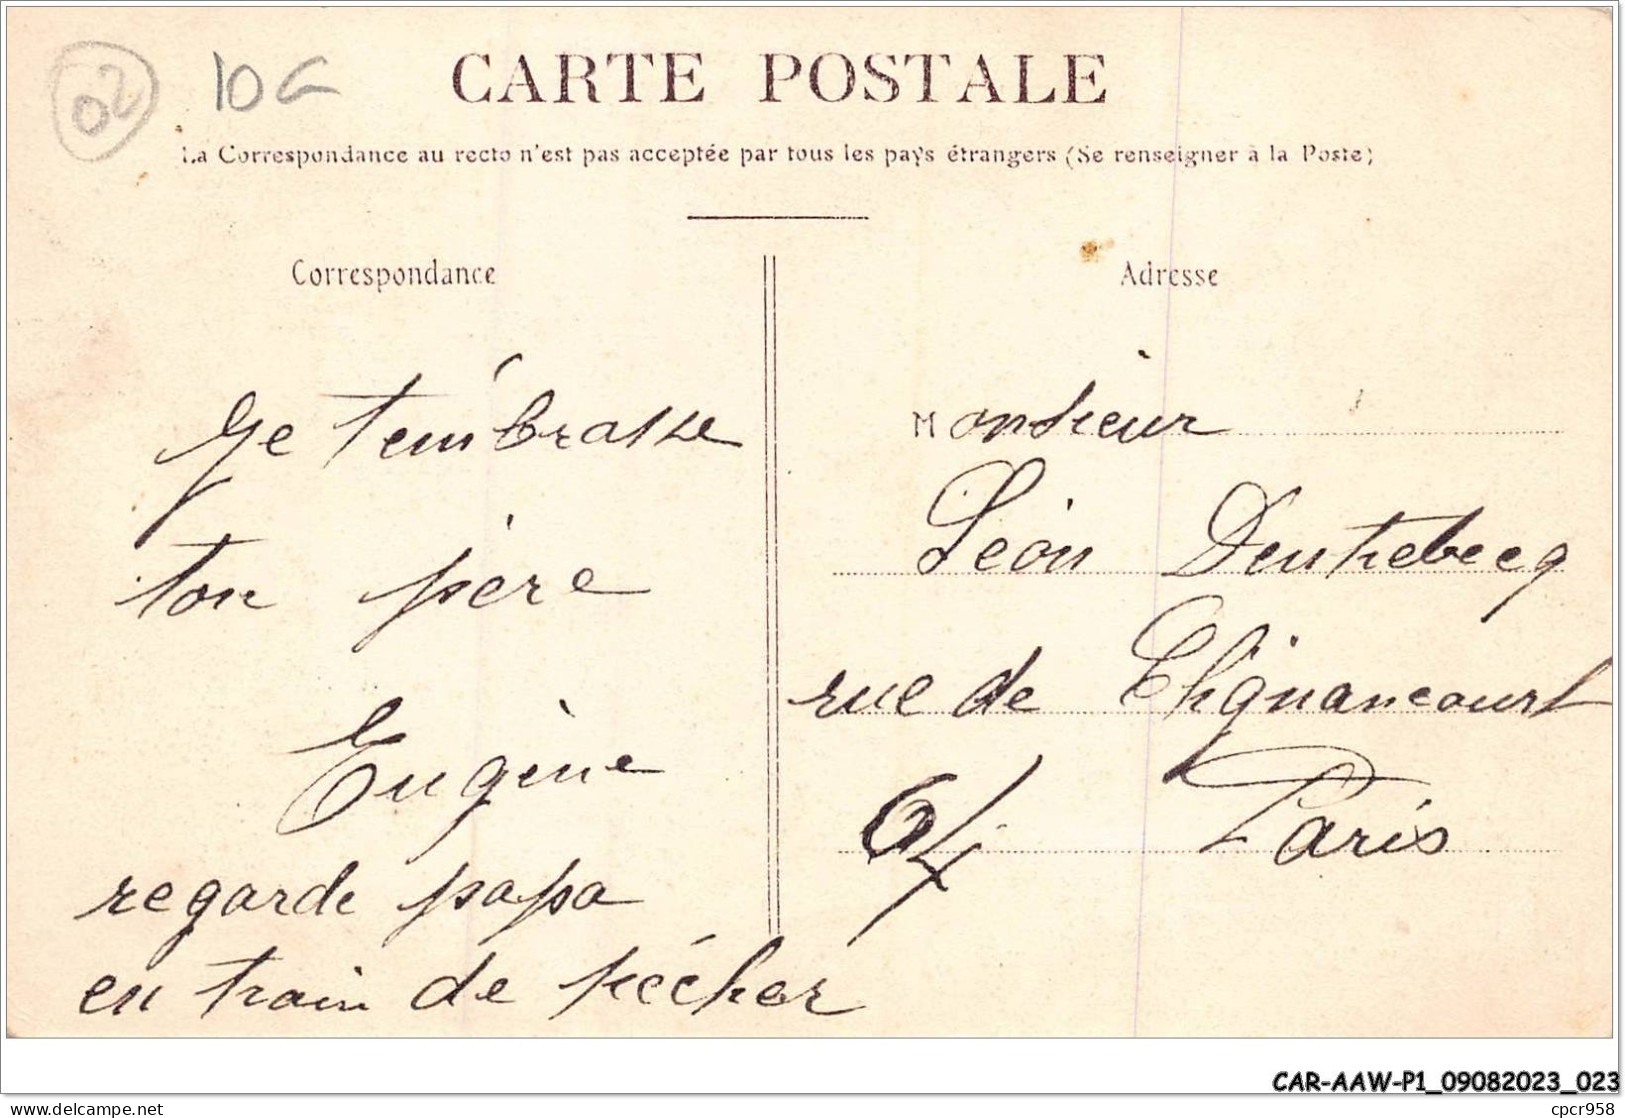 02 10G
CARTE POSTALE
La Correspondance au recto n'est pas acceptée par tous les pays étrangers (Se renseigner à la Poste)
Correspondance
Je t'embrasse
ton père
Eugène
regarde papa
en train de pécher
Adresse
Monsieur
Léon
rue de Clignancourt
64 Paris
CAR-AAW-P1_09082023_023
www.delcampe.net
cpcr958